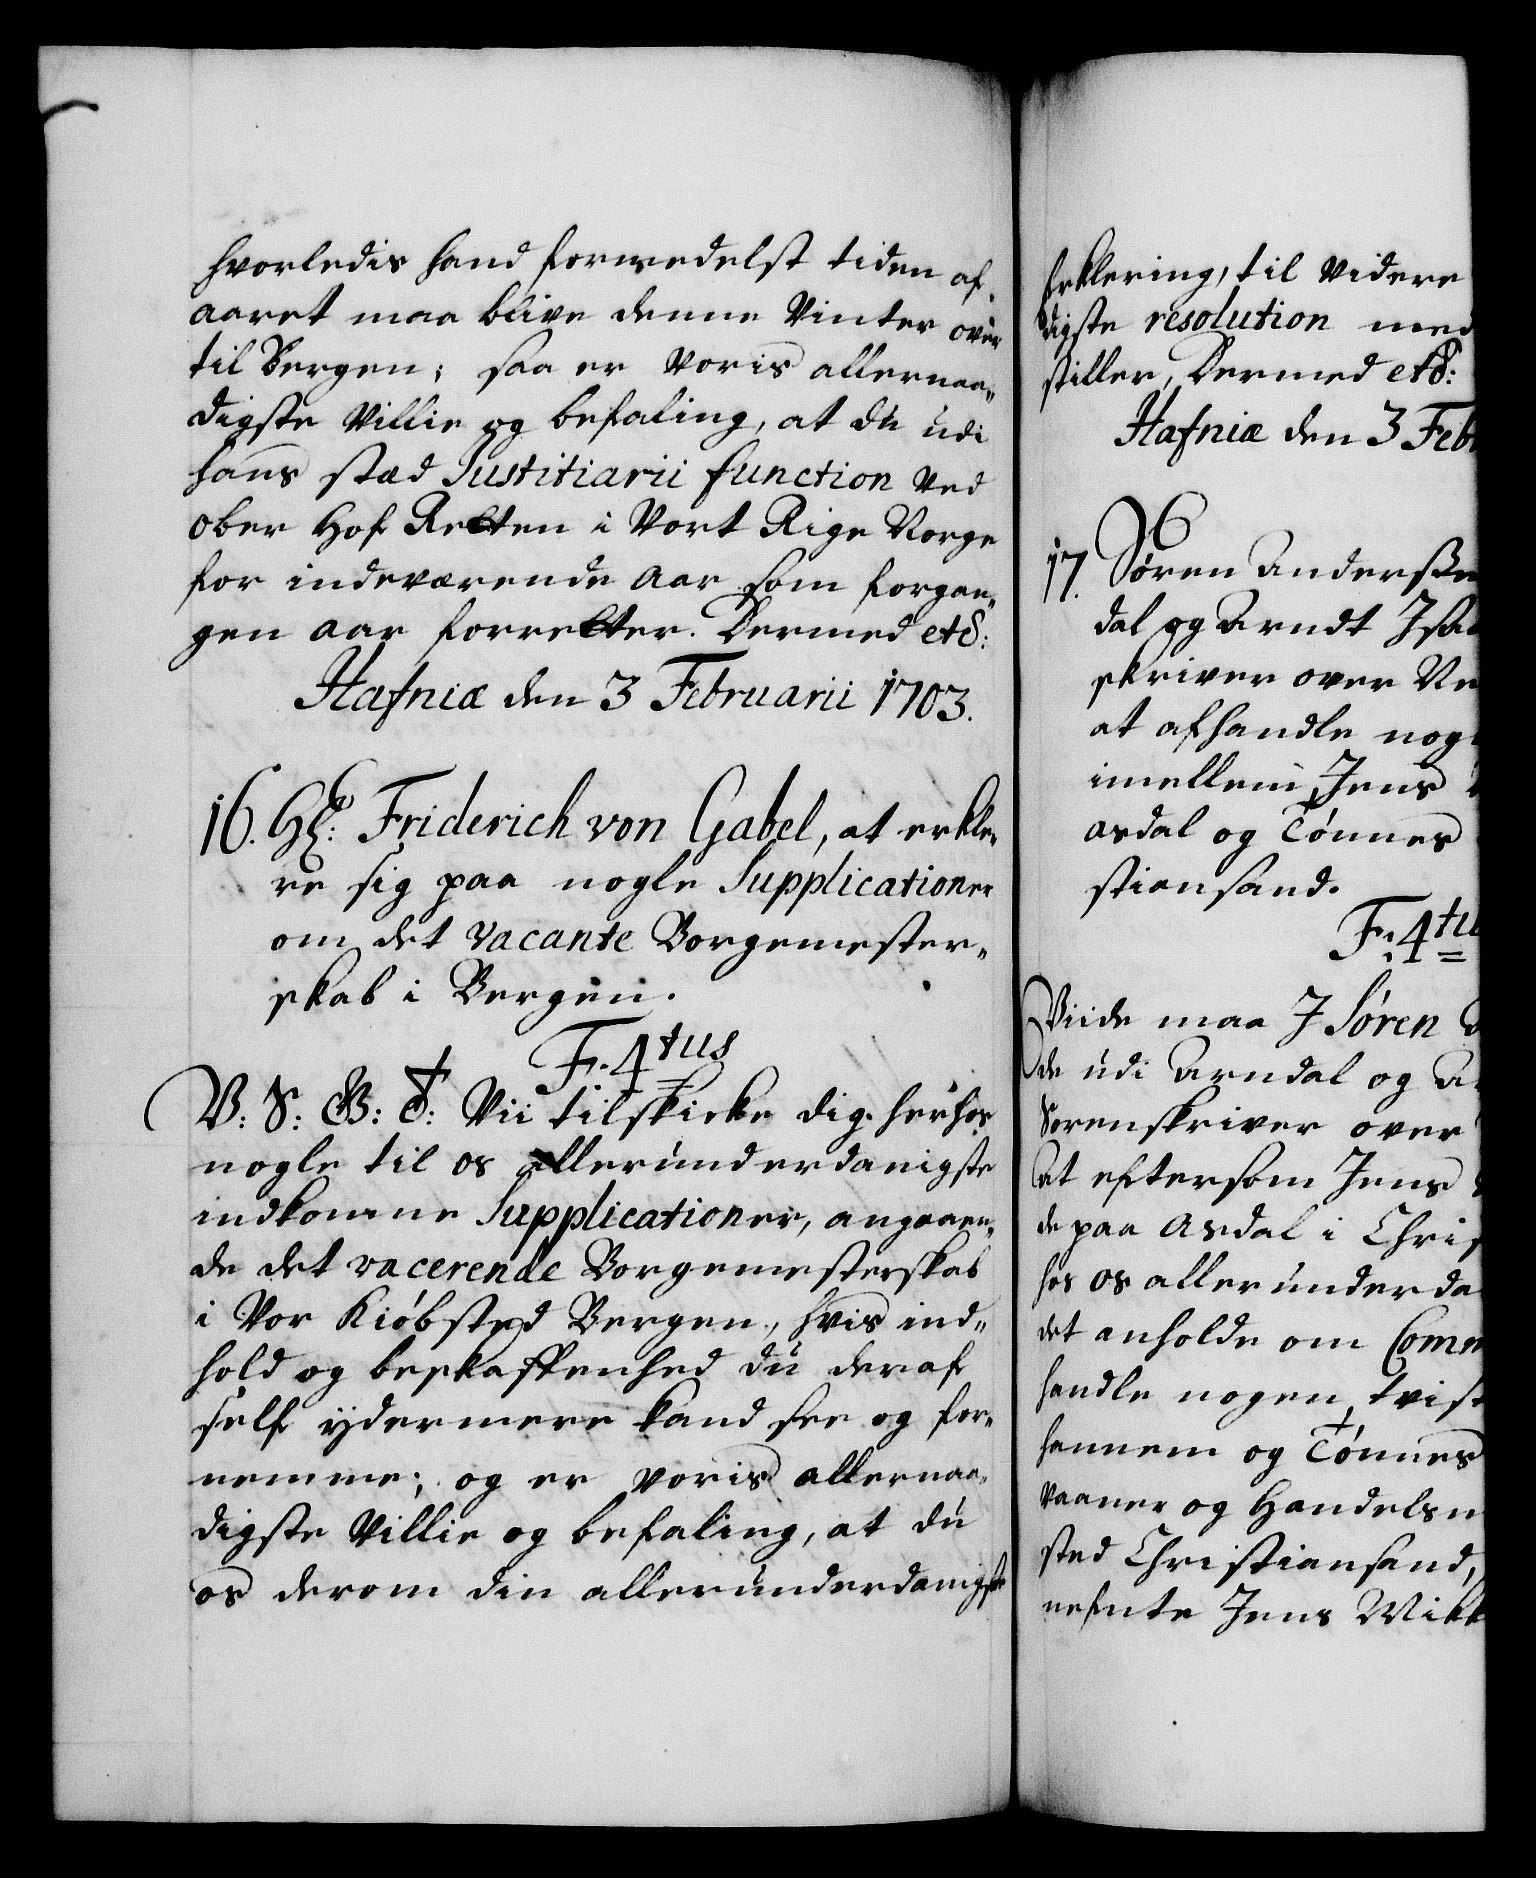 hvorledis hand formedelst tiden af
aaret maa blive denne Vinter over
til Bergen; saa er Voris allernaa„
digste Villie og befaling, at du udi
hans stæd Justitiarii function Ved
Ober Hof Retten i Vort Rige Norge
for indeværende Aar som forgan„
gen aar forretter. Dermed etc:
Hafniæ den 3 Februarii 1703.
16. Hr: Friderich von Gabel, at erkle„
re sig paa nogle Supplicationer
om det vacante Borgemester„
skab i Bergen.
F. 4tus
V: S: G: T: Vii tilskicke dig herhos
nogle til os allerunderdanigste
indkomne Supplicationer, angaaen„
de det vacerende Borgemesterskab
i Vor Kiöbsted Bergen, hvis ind„
hold og beskaffenhed du deraf
self ydermere kand see og for„
nemme; og er voris allernaa„
digste Villie og befaling, at du
os derom din allerunderdanigste
Erklering, til videre
digste resolution med
stiller, Dermed etc:
Hafniæ den 3 Feb
17. Sören Anderssen
dal og Arndt Isa
skriver over Ne
at afhandle nog
imellem Jens
Asdal og Tönnes
stiansand.
F: 4tu
Viide maa I Sören
de udi Arndal og A
Sorenskriver over
At eftersom Jens
de paa Asdal i Chris
hos os allerunderda
det anholde om Com
handle nogen tvist
hannem og Tönnes
vaaner og Handelsm
sted Christiansand,
nefnte Jens Wikk